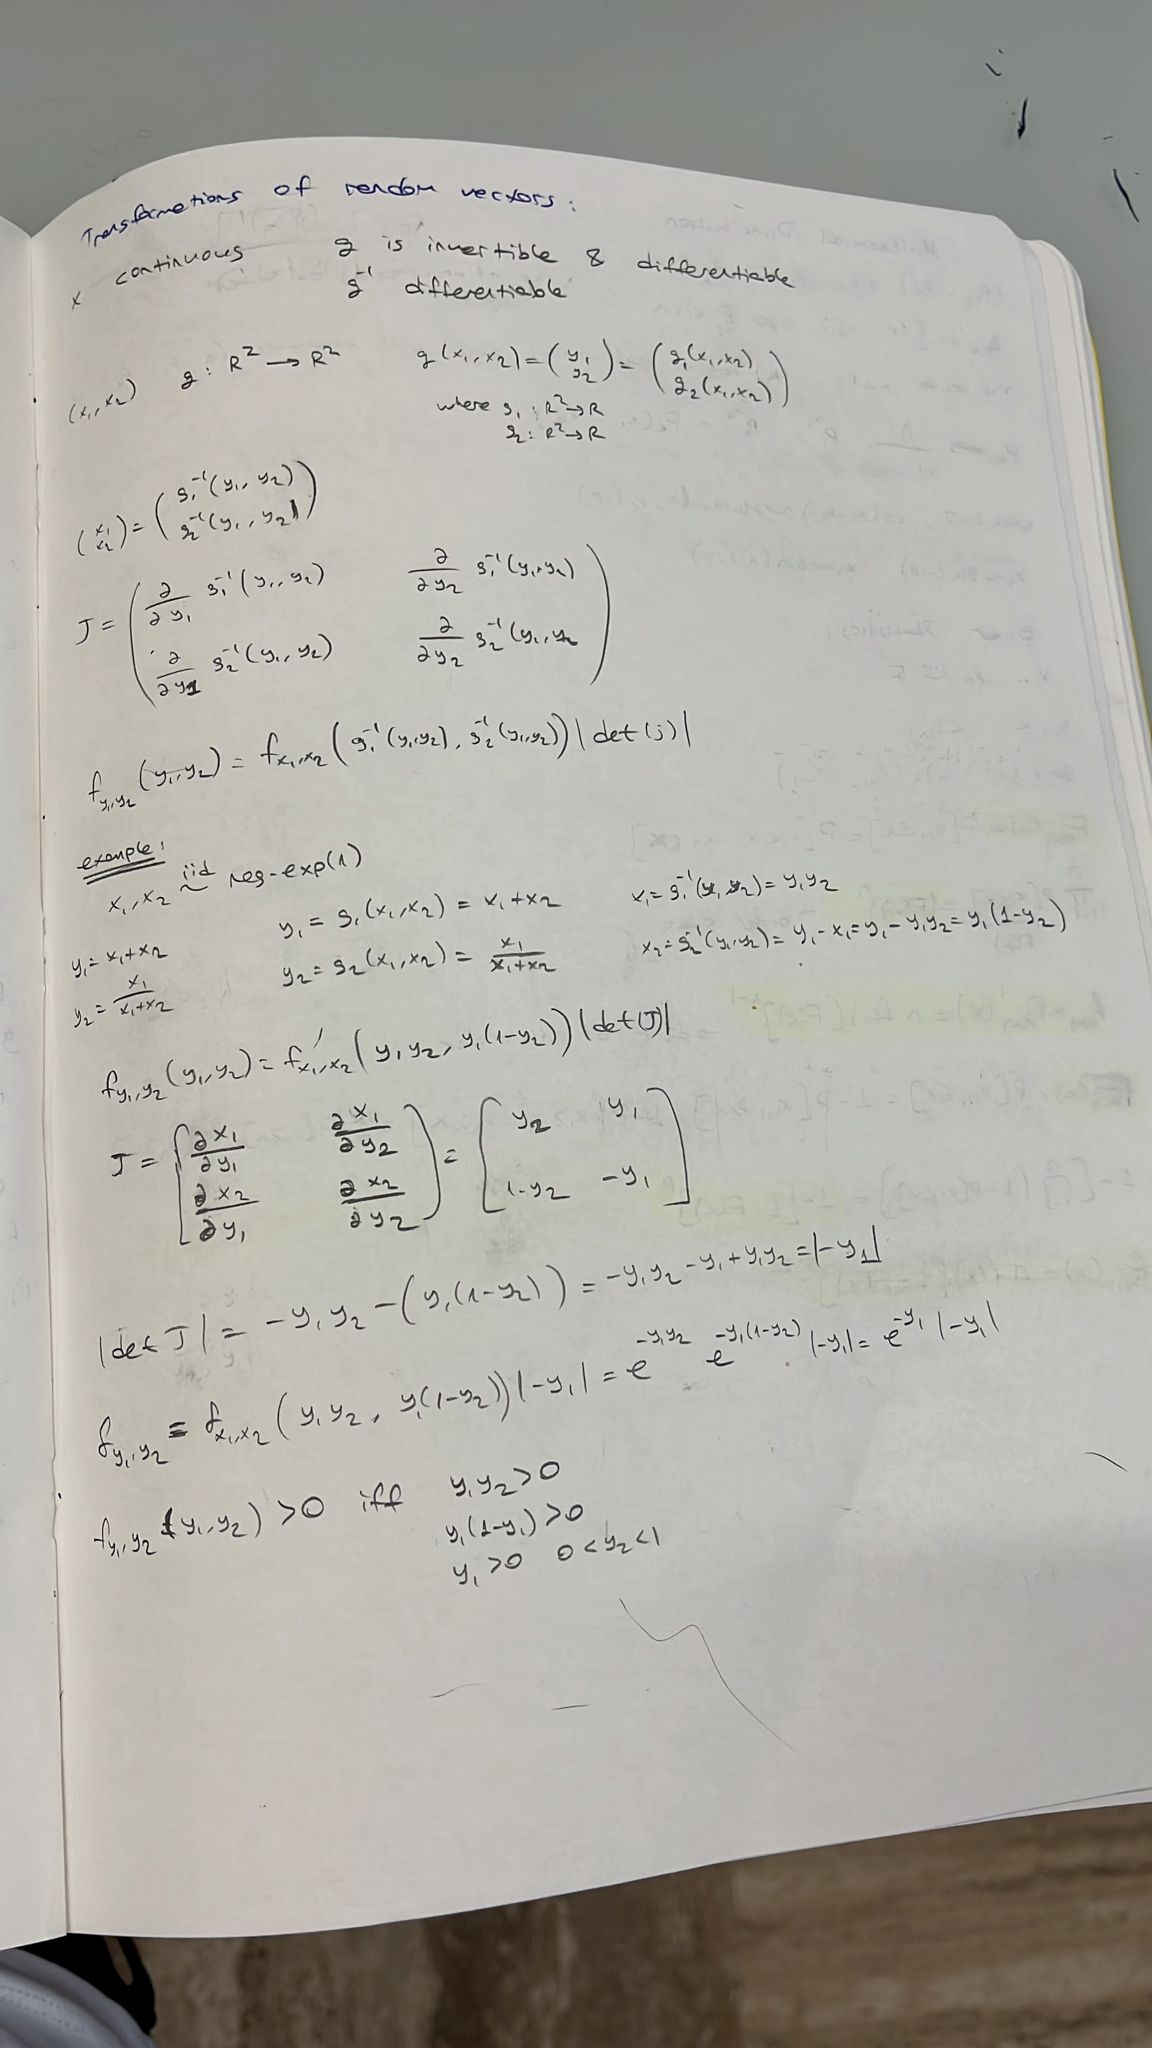 Transformations of random vectors:
x continuous g is invertible & differentiable
g⁻¹ differentiable
(x₁,x₂) g: R² → R² g(x₁,x₂) = (y₁ y₂) = (g₁(x₁,x₂) g₂(x₁,x₂))
where g₁: R²→R
g₂: R²→R
(x₁ x₂) = (g₁⁻¹(y₁,y₂) g₂⁻¹(y₁,y₂))
J = ( ∂/∂y₁ g₁⁻¹(y₁,y₂) ∂/∂y₂ g₁⁻¹(y₁,y₂)
∂/∂y₁ g₂⁻¹(y₁,y₂) ∂/∂y₂ g₂⁻¹(y₁,y₂ )
f_y₁,y₂ (y₁,y₂) = f_x₁,x₂ (g₁⁻¹(y₁,y₂), g₂⁻¹(y₁,y₂)) |det(j)|
example:
x₁,x₂ iid ~ neg-exp(1)
y₁ = x₁+x₂ y₁ = g₁(x₁,x₂) = x₁+x₂ x₁ = g₁⁻¹(y₁,y₂) = y₁y₂
y₂ = x₁/(x₁+x₂) y₂ = g₂(x₁,x₂) = x₁/(x₁+x₂) x₂ = g₂⁻¹(y₁,y₂) = y₁-x₁ = y₁-y₁y₂ = y₁(1-y₂)
f_y₁,y₂ (y₁,y₂) = f_x₁,x₂ (y₁y₂, y₁(1-y₂)) |det(J)|
J = [ ∂x₁/∂y₁ ∂x₁/∂y₂ ) = [ y₂ y₁ ]
[ ∂x₂/∂y₁ ∂x₂/∂y₂ ) [ 1-y₂ -y₁ ]
|det J| = -y₁y₂ - (y₁(1-y₂)) = -y₁y₂ - y₁ + y₁y₂ = |-y₁|
f_y₁,y₂ = f_x₁,x₂ (y₁y₂, y₁(1-y₂)) |-y₁| = e^(-y₁y₂) e^(-y₁(1-y₂)) |-y₁| = e^(-y₁) |-y₁|
f_y₁,y₂ (y₁,y₂) > 0 iff y₁y₂ > 0
y₁(1-y₁) > 0
y₁ > 0 0 < y₂ < 1